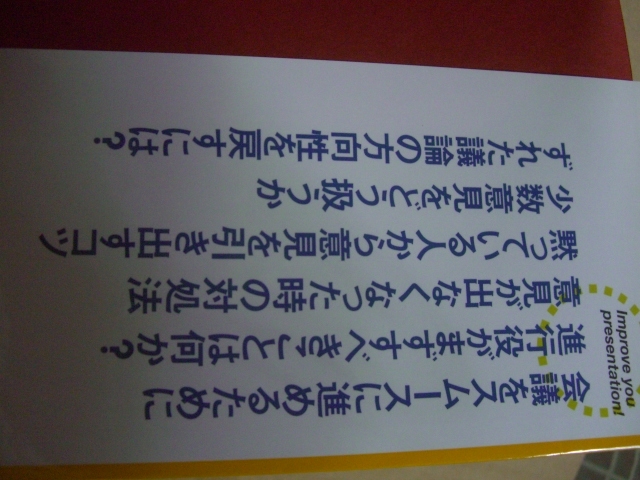 Improve you
presentation!
会議をスムースに進めるために
進行役がまずすべきことは何か?
意見が出なくなった時の対処法
黙っている人から意見を引き出すコツ
少数意見をどう扱うか
ずれた議論の方向性を戻すには?